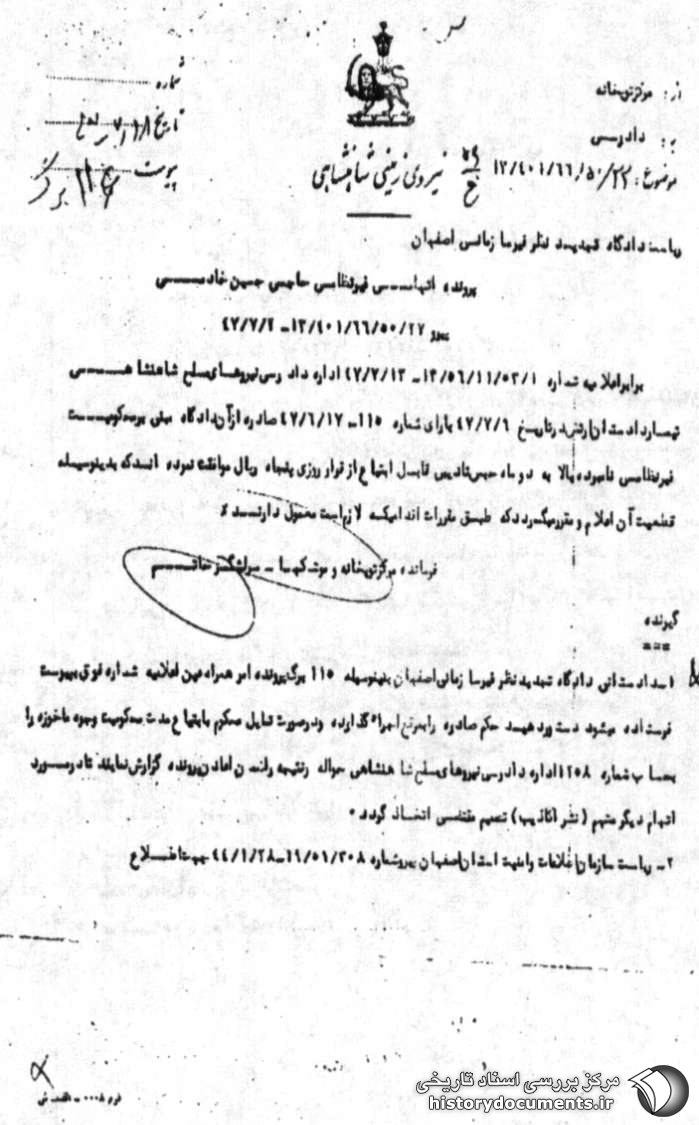 از: مرکز توپخانه
به: دادرسی
موضوع: ۱۲/۴۰۱/۶۶/۵۰/۲۲
شماره
تاریخ
پیوست ۱۱۶ برگ
نیروی زمینی شاهنشاهی
ریاست دادگاه تجدید نظر غیرسازمانی اصفهان
پرونده اتهامی غیرنظامی حاجی حسین خادمی
پیرو ۱۲/۴۰۱/۶۶/۵۰/۲۷ - ۴۷/۷/۲
برابر اعلامیه شماره ۱۲/۵۶/۱۱/۵۳/۱ - ۴۷/۷/۱۳ اداره دادرسی نیروهای مسلح شاهنشاهی
تیمسار دادستان ارتش در تاریخ ۴۷/۷/۶ با رای شماره ۱۱۵ - ۴۷/۶/۱۷ صادره از آن دادگاه مبنی بر محکومیت
غیرنظامی نامبرده بالا به دو ماه حبس تادیبی قابل ابتیاع از قرار روزی پنجاه ریال موافقت نموده اند که بدینوسیله
قطعیت آن اعلام و مقرر میگردد که طبق مقررات اقدامیکه لازم است معمول دارند
فرمانده مرکز توپخانه و موشکها - سرلشگر حاتم
گیرنده
===
۱- دادستانی دادگاه تجدید نظر غیرسازمانی اصفهان بدینوسیله ۱۱۵ برگ پرونده امر همراه عین اعلامیه شماره فوق بپیوست
فرستاده میشود دستور دهید حکم صادره را بموقع اجراء گذارده و در صورت تمایل محکوم بابتیاع مدت محکومیت وجوه ماخوذه را
بحساب شماره ۱۲۵۸ اداره دادرسی نیروهای مسلح شاهنشاهی حواله و نتیجه را ضمن اعاده پرونده گزارش نمایند تا در مورد
اتهام دیگر متهم (نشر اکاذیب) تصمیم مقتضی اتخاذ گردد .
۲- ریاست سازمان اطلاعات و امنیت استان اصفهان پیرو شماره ۱۶/۵۱/۳۰۸ - ۴۴/۱/۲۸ جهت اطلاع
مرکز بررسی اسناد تاریخی
historydocuments.ir